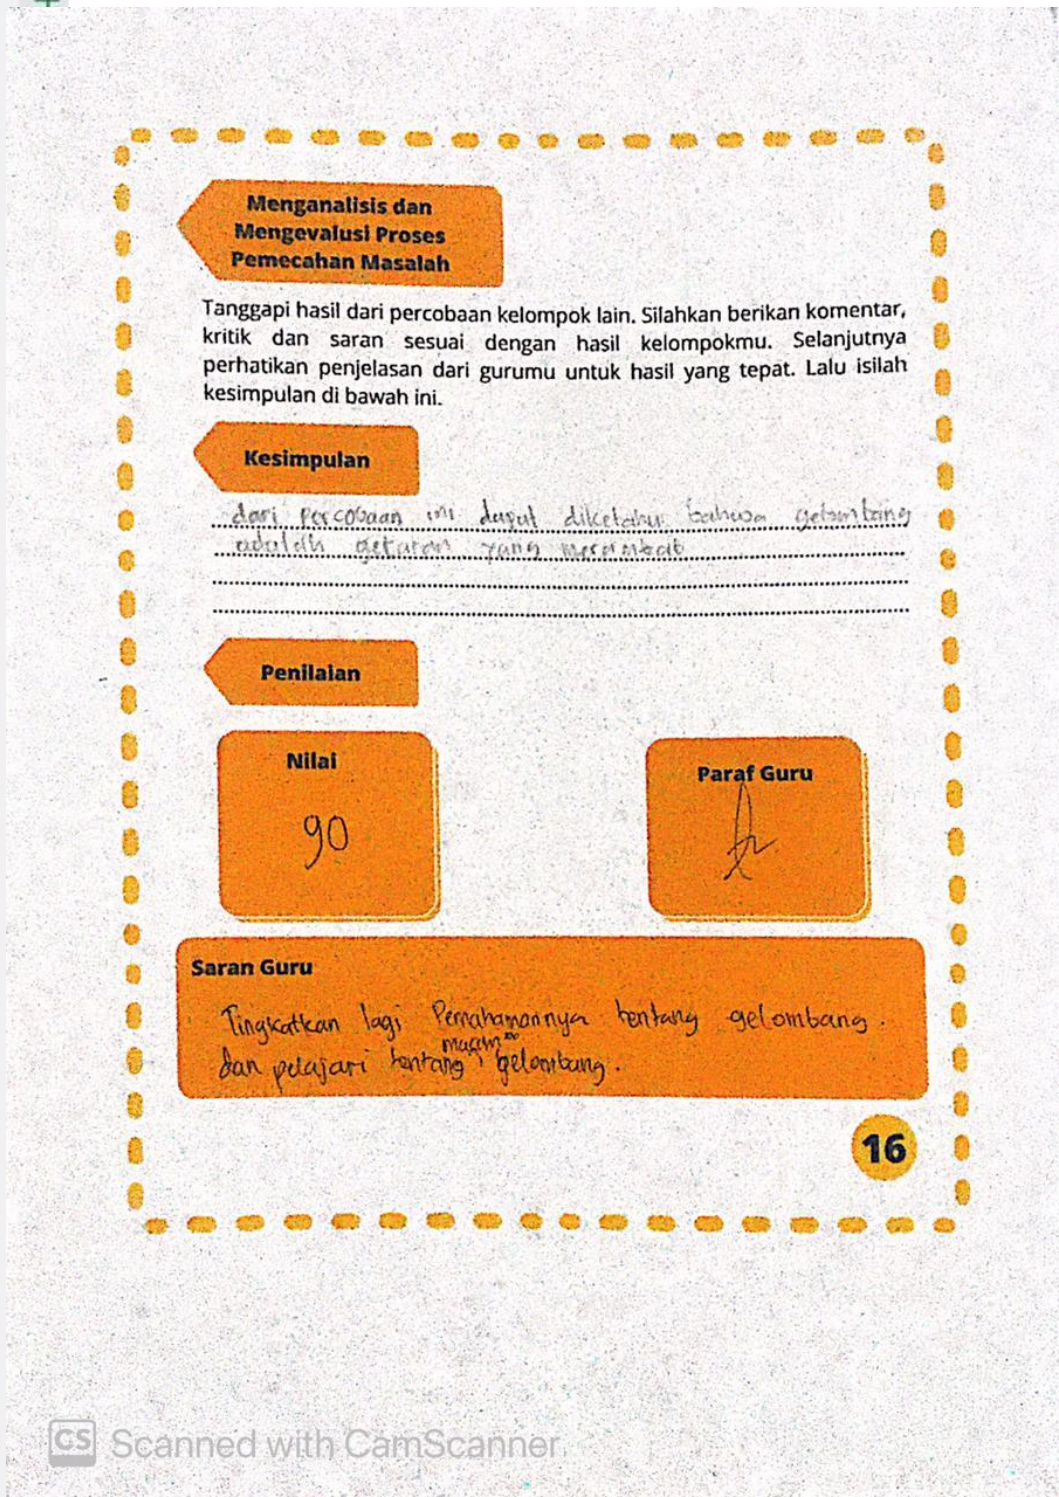 Menganalisis dan
Mengevalusi Proses
Pemecahan Masalah
Tanggapi hasil dari percobaan kelompok lain. Silahkan berikan komentar,
kritik dan saran sesuai dengan hasil kelompokmu. Selanjutnya
perhatikan penjelasan dari gurumu untuk hasil yang tepat. Lalu isilah
kesimpulan di bawah ini.
Kesimpulan
dari percobaan ini dapat diketahui bahwa gelombang
adalah getaran yang merambat
Penilaian
Nilai
90
Paraf Guru
Saran Guru
Tingkatkan lagi Pemahamannya tentang gelombang.
dan pelajari tentang macam" gelombang.
16
CS Scanned with CamScanner